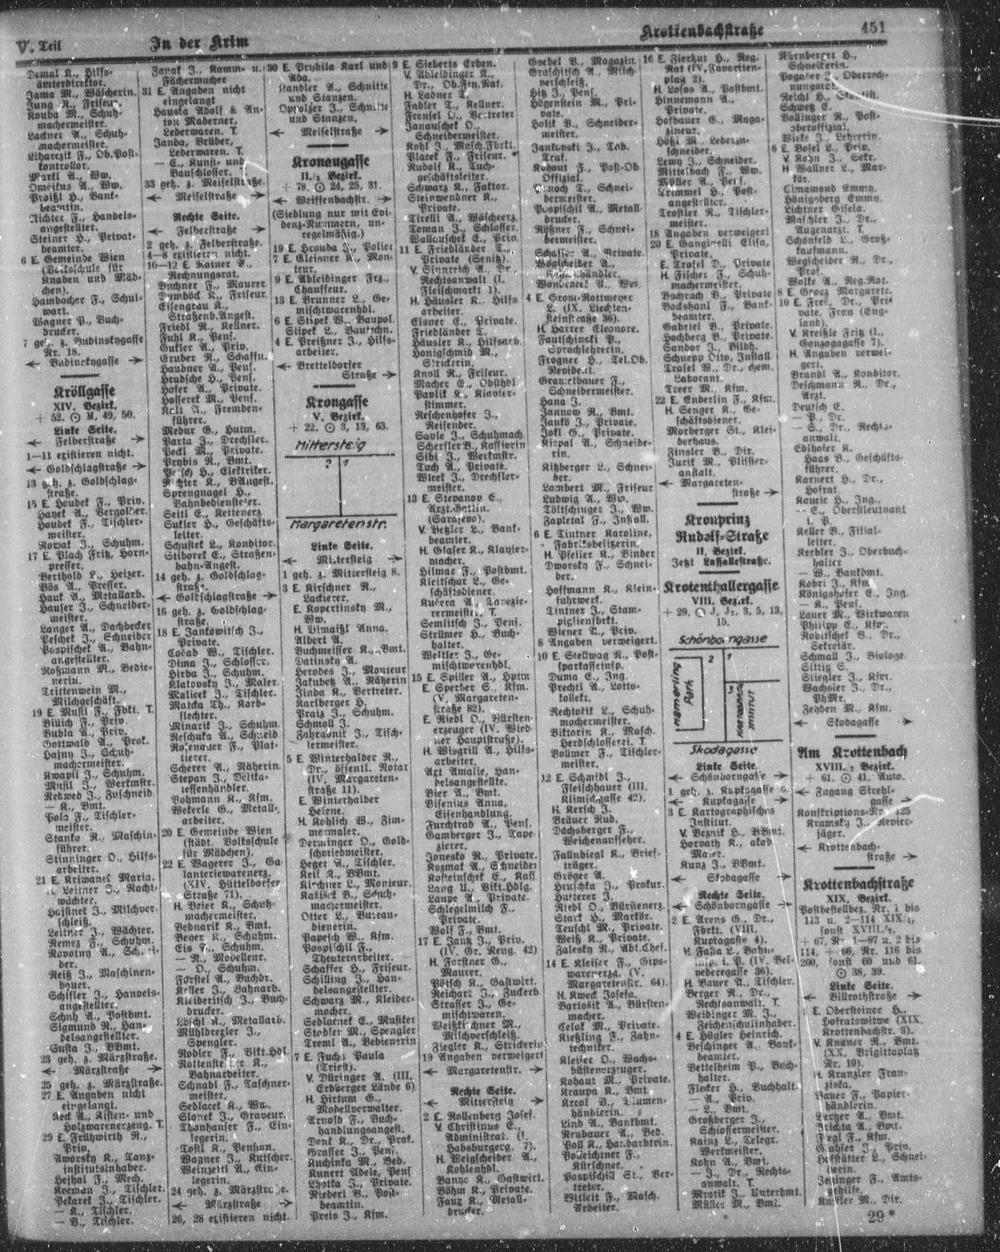 V. Teil
In der Krim
Krottenbachstraße
451
Demal K., Hilfs-
ämterdirektor.
Jama M., Wäscherin.
Jung R., Friseur.
Kouba M., Schuh-
machermeister.
Lackner A., Schuh-
machermeister.
Liharczik F., Ob.Post-
kontrollor.
Martl A., Ww.
Steiner H., Privat-
beamter.
6 E. Gemeinde Wien
(Volksschule für
Knaben und Mäd-
chen).
Hambacher F., Schul-
wart.
Wagner P., Buch-
drucker.
7 geh. z. Rudinskygasse
Nr. 18.
Kröllgasse
XIV. Bezirk.
Linke Seite.
← Felberstraße →
1–11 existieren nicht.
← Goldschlagstraße →
13 geh. z. Goldschlag-
straße.
15 E. Houdek F., Priv.
Hayek A., Vergolder.
Houdek F., Tischler-
meister.
Nowak J., Schuhm.
17 E. Plach Fritz, Horn-
presser.
Berthold L., Heizer.
Bös A., Presser.
Hauk A., Metallarb.
Hauser J., Schneider-
meister.
Langer A., Dachdecker
Peschek J., Schneider
Pospischek A., Bahn-
angestellter.
Roßmann M., Bedie-
nerin.
Trittenwein M.,
Milchgeschäft.
19 E. Musil F., Fbkt. T.
Billich F., Priv.
Bubla A., Priv.
Gottwald A., Prok.
Hajny J., Schuh-
machermeister.
Kwapil J., Schuhm.
Musil J., Werkmstr.
— K., Bmt.
Polz F., Tischler-
meister.
Stanko R., Maschin-
führer.
Stinninger O., Hilfs-
arbeiter.
21 E. Kriwanek Maria.
H. Leitner J., Nacht-
wächter.
Leitner J., Wächter.
Remez F., Schuhm.
Reiß J., Maschinen-
bauer.
Schiffler J., Handels-
angestellter.
Schuh A., Postbmt.
Sigmund R., Han-
delsangestellter.
Susta J., BBmt.
23 geh. z. Märzstraße.
← Märzstraße →
25 geh. z. Märzstraße.
27 E. Angaben nicht
eingelangt.
Keck A., Kisten- und
Holzwarenerzeug. T.
29 E. Frühwirth R.,
Priv.
Aworsky K., Tanz-
institutsinhaber.
Hejhal F., Mech.
Koeman J., Tischler.
Pekarek J., Tischler.
— K., Tischler.
— B., Tischler.
Janak J., Kamm- u.
Fächermacher
31 E. Angaben nicht
eingelangt
Hausta Adolf & An-
ton Maderner,
Lederwaren. T.
Janda, Brüder,
Lederwaren. T.
— E., Kunst- und
Bauschlosser.
33 geh. z. Meiselstraße.
← Meiselstraße →
Rechte Seite.
← Felberstraße →
2 geh. z. Felberstraße.
4–8 existieren nicht.
10–12 E. Kainer A.,
Rechnungsrat.
Buchner F., Maurer
Dumböck K., Friseur
Eisengrau K.,
Straßenb.Angest.
Friedl R., Kellner.
Fuhl K., Pens.
Gukler A., Priv.
Gruber R., Schaffn.
Haubner A., Pens.
Hradsche H., Pens.
Hofer A., Private.
Hofferek M., Pens.
Kell A., Fremden-
führer.
Medur G., Hutm.
Parta J., Drechsler.
Peckl M., Private.
Prybis R., Bmt.
Resch H., Elektriker.
Sprengnagel H.,
Bahnbediensteter.
Seitl E., Kettenerz.
Sukler H., Geschäfts-
leiter.
Schustek L., Konditor.
Stiborek E., Straßen-
bahn-Angest.
14 geh. z. Goldschlag-
straße.
← Goldschlagstraße →
16 geh. z. Goldschlag-
straße.
18 E. Jankowitsch J.,
Private.
Dima J., Schlosser.
Hirba J., Schuhm.
Klatovsky J., Maler.
Malicek J., Tischler.
Matcka Th., Korb-
flechter.
Minarik J., Schuhm.
Reschuka A., Schneid.
Rosenauer F., Plat-
tierer.
Scherer A., Näherin.
Stepan J., Delika-
tessenhändler.
Vohmann K., Kfm.
Wekerle G., Metall-
arbeiter.
20 E. Gemeinde Wien
(städt. Volksschule
für Mädchen).
22 E. Wagerer J., Ga-
lanteriewarenerz.
(XIV, Hütteldorfer
Straße 71).
H. Beier K., Schuh-
machermeister.
Bednarik K., Bmt.
Beyer K., Schuhm.
Eis F., Schuhm.
— R., Modelleur.
— O., Schuhm.
Forstel A., Buchdr.
Keller J., Bahnarb.
Kleiberitsch J., Buch-
drucker.
Löschl K., Metallarb.
Mühldrexler J.,
Spengler.
Rodler F., Vikt.Hdl.
Bahnarbeiter.
Schnabl F., Taschner-
meister.
Sedlacek K., Ww.
Slanek J., Graveur.
Thonhauser F., Ein-
legerin.
Toifl K., Pension.
Wagner J., Kutscher.
Weinzettl A., Ein-
legerin.
24 geh. z. Märzstraße.
← Märzstraße →
26, 28 existieren nicht.
30 E. Prybila Karl und
Ada.
Kandler A., Schnitte
und Stanzen.
Oprolzer J., Schnitte
und Stanzen.
← Meiselstraße →
Kronaugasse
II., Bezirk.
+ 78, ⊙ 24, 25, 31.
← Weißenbachstr. →
(Siedlung nur mit Evi-
denz-Nummern, un-
regelmäßig.)
19 E. Hrouda J., Polier
7 E. Gleisner K., Mon-
teur.
9 E. Ableidinger Frz.,
Chauffeur.
13 E. Brunner L., Ge-
mischtwarenhdl.
6 E. Stipek W., Baupol.
Stipek L., Bautechn.
4 E. Preißner J., Hilfs-
arbeiter.
← Bretteldorfer
Straße →
Krongasse
V. Bezirk.
+ 22. ⊙ 3, 13, 63.
Mittersteig
2 1
Margaretenstr.
Linke Seite.
← Mittersteig →
1 geh. z. Mittersteig 8.
3 E. Kirschner R.,
Lackierer.
E. Kopertinsky M.,
Ww.
H. Dimaißl Anna.
Albert A.
Buchmeister K., Bmt.
Datinsky A.
Herodes J., Monteur
Jakubetz A., Näherin
Jinda K., Vertreter.
Karlberger H.
Prais J., Schuhm.
Schmoll J.
Zahradnik J., Tisch-
lermeister.
5 E. Winterhalder R.,
Dr., öffentl. Notar
(IV, Margareten-
straße 11).
E. Winterhalder
Helene.
H. Koblich W., Zim-
mermaler.
Derminger O., Gold-
schmiedmeister.
Heger A., Tischler.
Keil K., BBmt.
Kirchner L., Monieur.
Kastisek B., Schuh-
machermeister.
Otter L., Bureau-
dienerin.
Papesch W., Kfm.
Pospischil F.,
Theaterarbeiter.
Schaffer H., Friseur.
Schilling J., Han-
delsangestellter.
Schwarz M., Kleider-
macher.
Sedlacek E., Musiker
Stadler M., Spengler
Treml A., Bedienerin
7 E. Fuchs Paula
(Triest).
V. Düringer A. (III,
Erdberger Lände 6).
H. Hirtum G.,
Modellverwalter.
Arnold F., Buch-
handlungsangest.
Denk K., Dr., Prof.
Grasser J., Pens.
Kuchinka M., Bed.
Kunert Adele, Pens.
Lhotka J., Private.
Niederl B., Post-
beamtin.
Preis J., Kfm.
9 E. Sieberts Erben.
V. Ableidinger K.,
Dr., Ob.Fin.Rat.
H. Ladner T.
Fadler T., Kellner.
Frensel O., Vertreter
Janauschek O.,
Schneidermeister.
Kohl J., Masch.Fbrkt.
Platek F., Friseur.
Rudolf K., Tuch-
geschäftsleiter.
Schwarz K., Faktor.
Steinwendner K.,
Private.
Tirelli A., Wäscherz.
Toman J., Schlosser.
Walluschek E., Priv.
11 E. Friedländer T.,
Private (Senitz).
V. Sinnreich A., Dr.,
Rechtsanwalt (I,
Fleischmarkt 1).
H. Häusler K., Hilfs-
arbeiter.
Elsner E., Private.
Friedländer T.
Häusler K., Hilfsarb.
Honigschmid M.,
Strickerin.
Knoll R., Friseur.
Macher E., Obsthdl.
Pavlik K., Klavier-
stimmer.
Reschenhofer J.,
Reisender.
Savle J., Schuhmach.
Scherfler B., Kassierin
Sibl J., Werkmstr.
Tuch A., Private.
Wleck J., Drechsler-
meister.
13 E. Stepanov E.,
Arzt.Gattin.
(Sarajevo).
V. Beßler L., Bank-
beamter.
H. Glaser K., Klavier-
macher.
Hilmar F., Postbmt.
Kleitschar L., Ge-
schäftsdiener.
Kubera A., Tapezie-
rermeister. T.
Semlitsch J., Pens.
Strümer H., Buch-
halter.
Weltler J., Ge-
mischtwarenhdl.
15 E. Spiller A., Hptm
E. Sperber S., Kfm.
(V, Margareten-
straße 82).
E. Riedl O., Bürsten-
erzeuger (IV. Wied-
ner Hauptstraße).
H. Wisgrill A., Hilfs-
arbeiter.
Axt Amalie, Han-
delsangestellte.
Bier A., Bmt.
Bisenius Anna,
Eisenhandlung.
Furchtrad A., Pens.
Gamberger J., Tape-
zierer.
Jonesko R., Private.
Kozmak A., Schneider
Kosteinschek E., Kass.
Lang U., Vikt.Hdlg.
Laupe A., Private.
Schlegelmilch F.,
Private.
Wolf F., Bmt.
17 E. Jantz J., Priv.
(IV, Gr. Neug. 42)
H. Forstner G.,
Maurer.
Pötsch K., Gastwirt.
Reichart J., Zuckerb.
Strasser J., Ge-
mischtwaren.
Weißkirchner M.,
Milchverschleiß.
Ziegler K., Strickerin
19 Angaben verweigert
← Margaretenstr. →
Rechte Seite.
← Mittersteig →
2 E. Rollenberg Josef.
V. Christinus E.,
Administrat. (I,
Habsburgerg. 7).
H. Weigscheider A.,
Kohlenhdl.
Bango K., Gastwirt.
Böhm K., Private.
Fanz K., Metall-
drucker.
Goebel B., Magazin
Graschitsch A., Milch-
verschleiß.
Hitz J., Pens.
Högenstein M., Pri-
vate.
Holik B., Schneider-
meister.
Jankovski J., Tab.
Traf.
Kohout F., Post-Ob.
Offizial.
Pospischil A., Metall-
drucker.
Rößner F., Schnei-
dermeister.
Schaffer A., Private.
4 E. Grom-Rottmeyer
L. (IX, Liechten-
steinstraße 36).
H. Harrer Eleonore.
Fautschinski P.,
Sprachlehrerin.
Frogner H., Tel.Ob.
Revident.
Granetbauer F.,
Schneidermeister.
Hana J.
Jannow R., Bmt.
Janko J., Private.
Jokl G., Private.
Kirpal A., Schneide-
rin.
Kitzberger L., Schnei-
der.
Lambert M., Friseur
Ludwig A., Ww.
Töltschinger J., Ww.
Zapletal F., Install.
6 E. Tintner Karoline,
Fabriksbesitzerin.
H. Pfeifer K., Binder
Dworsky F., Schnei-
der.
Hoffmann K., Klein-
fuhrwerk.
Tintner J., Stam-
piglienfbrkt.
Wiener L., Priv.
8 Angaben verweigert.
10 E. Stellwag R., Post-
sparkasseninsp.
Duma E., Ing.
Prechtl A., Lotto-
kollekt.
Rechtorik L., Schuh-
machermeister.
Viktorin K., Masch.
Herdschlosserei. T.
Wollmer F., Tischler-
meister.
12 E. Schmidl J.,
Fleischhauer (III,
Klimschgasse 42).
H. Kersch J.
Bräuer Rud.
Dachsberger F.,
Weichenaufseher.
Fallnbigl K., Brief-
träger.
Gröger A.
Hruschka J., Prokur.
Hutterer J.
Riedl O., Bürstenerz.
Stark H., Markör.
Teuschl M., Private.
Weiß K., Private.
Zalesky R., Abt.Chef.
14 E. Kleiser F., Gips-
warenerz. (V,
Margaretenstr. 64).
H. Kweck Josefa.
Bartosik A., Bürsten-
macher.
Celak M., Private.
Kießling F., Zahn-
techniker.
Kleiser O., Wachs-
büstenerzeuger.
Kohaut M., Private.
Kraupa K., Bmt.
Krcal B., Blumen-
händlerin.
Lind A., Bankbmt.
Neubauer A., Bed.
Poll K., Parkardbrkn.
Polleichtner F.,
Kürschner.
Pospischil St., Ver-
treter.
Witleit F., Masch.
Arbeiter.
16 E. Fierhut H., Reg.
Rat (IV, Favoriten-
platz 2).
H. Losos A., Postbmt.
Hinnemann A.,
Private.
Hofbauer G., Maga-
zineur.
Hößl M., Lederzu-
schneider.
Lewy J., Schneider.
Mittelbach F., Ww.
Möller A., Pens.
Tremmel H., Post-
angestellter.
Trostler R., Tischler-
meister.
18 Angaben verweigert
20 E. Ganginelli Elisa,
Private.
E. Trafel D., Private
H. Fischer F., Schuh-
machermeister.
Bachrach B., Private
Backshandl F., Bank-
beamter.
Gabriel B., Private.
Hochberg B., Private
Sandor J., Bildh.
Schnepp Otto, Install
Trafel W., Dr., chem.
Laborant.
Treer M., Kfm.
22 E. Enderlin F., Kfm.
H. Senger K., Ge-
schäftsdiener.
Morberger St., Klei-
derhaus.
Zinsler B., Dir.
Jurik M., Plissier-
anstalt.
← Margareten-
straße →
Kronprinz
Rudolf-Straße
II. Bezirk.
Jetzt Lassallestraße.
Krotenthallergasse
VIII. Bezirk.
15.
Schönborngasse
Hamerling
Park
2 1
3
Kartograph.
Institut
Skodagasse
Linke Seite.
← Schönborngasse →
1 geh. z. Kupkagasse 6.
← Kupkagasse →
3 E. Kartographisches
Institut.
V. Beznik H., BBmt.
Horvath K., akad.
Maler.
Kunz J., BBmt.
← Skodagasse →
Rechte Seite.
← Schönborngasse →
2 E. Arens G., Dr.,
Fbrkt. (VIII,
Kupkagasse 4).
V. Falla L., Bahn-
insp. i. P. (IV, Bel-
vederegasse 36).
H. Bauer A., Tischler.
Berger R., Dr.,
Rechtsanwalt. T.
Weidinger M. J.,
Zeichenschulinhaber.
4 E. Hügler Heinrich.
Beschinger A., Bank-
beamter.
Bettelheim P., Buch-
halter.
Flecker H., Buchhalt.
— A., Priv.
— L., Bmt.
Großberger J.,
Schlossermeister.
Kainz L., Telegr.
Werkmeister.
Kohn A., Bmt.
— J., Dr., Rechts-
anwalt. T.
Mrotik J., Unterbmt.
Müller M., Bmt.
Nürnberger H.,
Schneiderin.
Pogatser J., Oberrech-
nungsrat.
Reichl H., Slovist.
Schwetz E.
Vollinger R., Post-
oberoffizial.
Wicke J., Lehrerin.
6 E. Bosel L., Priv.
V. Kozn J., Sekr.
H. Wallner L., Mar-
kör.
Cimamond Emmy.
Königsberg Emmy.
Lichtner Gisela.
Maschler J., Dr.,
Augenarzt. T.
Schönfeld L., Groß-
kaufmann.
Wegscheider R., Dr.,
Prof.
Wolke A., Reg.Rat.
8 E. Grosz Margarete.
10 E. Frei, Dr., Pri-
vate, Frau (Eng-
land).
V. Kreißle Fritz (I,
Gonzagagasse 7).
H. Angaben verwei-
gert.
Brandl A., Konditor.
Deschmann R., Dr.,
Arzt.
Deutsch E.
— P., Dr.
— S., Dr., Rechts-
anwalt.
Edlhofer K.
Haas B., Geschäfts-
führer.
Karnert H., Dr.,
Hofrat.
Kauric H., Ing.
— E., Oberstleutnant
i. P.
Keller B., Filial-
leiter.
Kerbler J., Oberbuch-
halter
— W., Bankbmt.
Kobri J., Kfm.
Königshofer E., Ing.
— K., Pens.
Lauer M., Wirkwaren
Philipp E., Kfm.
Robitschek B., Dr.,
Sekretär.
Schmall J., Biologe.
Sittig S.
Stiegler J., Kfm.
Wachsler J., Dr.,
PhMr.
Zehden M., Kfm.
← Skodagasse →
Am Krottenbach
XVIII., Bezirk.
+ 61. ⊙ 41. Auto.
← Zugang Strehl-
gasse →
Konskriptions-Nr. 125
Kramsky J., Revier-
jäger.
← Krottenbach-
straße →
Krottenbachstraße
XIX. Bezirk.
Postbestellbez. Nr. 1 bis
113 u. 2–114 XIX/1,
sonst XVIII/1.
+ 67, Nr. 1–97 u. 2 bis
114, + 66, Nr. 116 bis
200, sonst 60 und 61.
⊙ 38, 39.
Linke Seite.
← Billrothstraße →
1 E. Obersteiner H.,
Hofratswitwe (XIX,
Krottenbachstr. 3).
V. Knauer R., Bmt.
(XX, Brigittaplatz
Nr. 10).
H. Kranzler Fran-
ziska.
Bauer F., Papier-
händlerin.
Berger A., Bmt.
Brichta A., Bmt.
Fiegl F., Kfm.
Gabler J., Priv.
Hofstätter L., Schnei-
derin.
Jeninger F., Amts-
gehilfe.
Kummer M., Dir.
29*